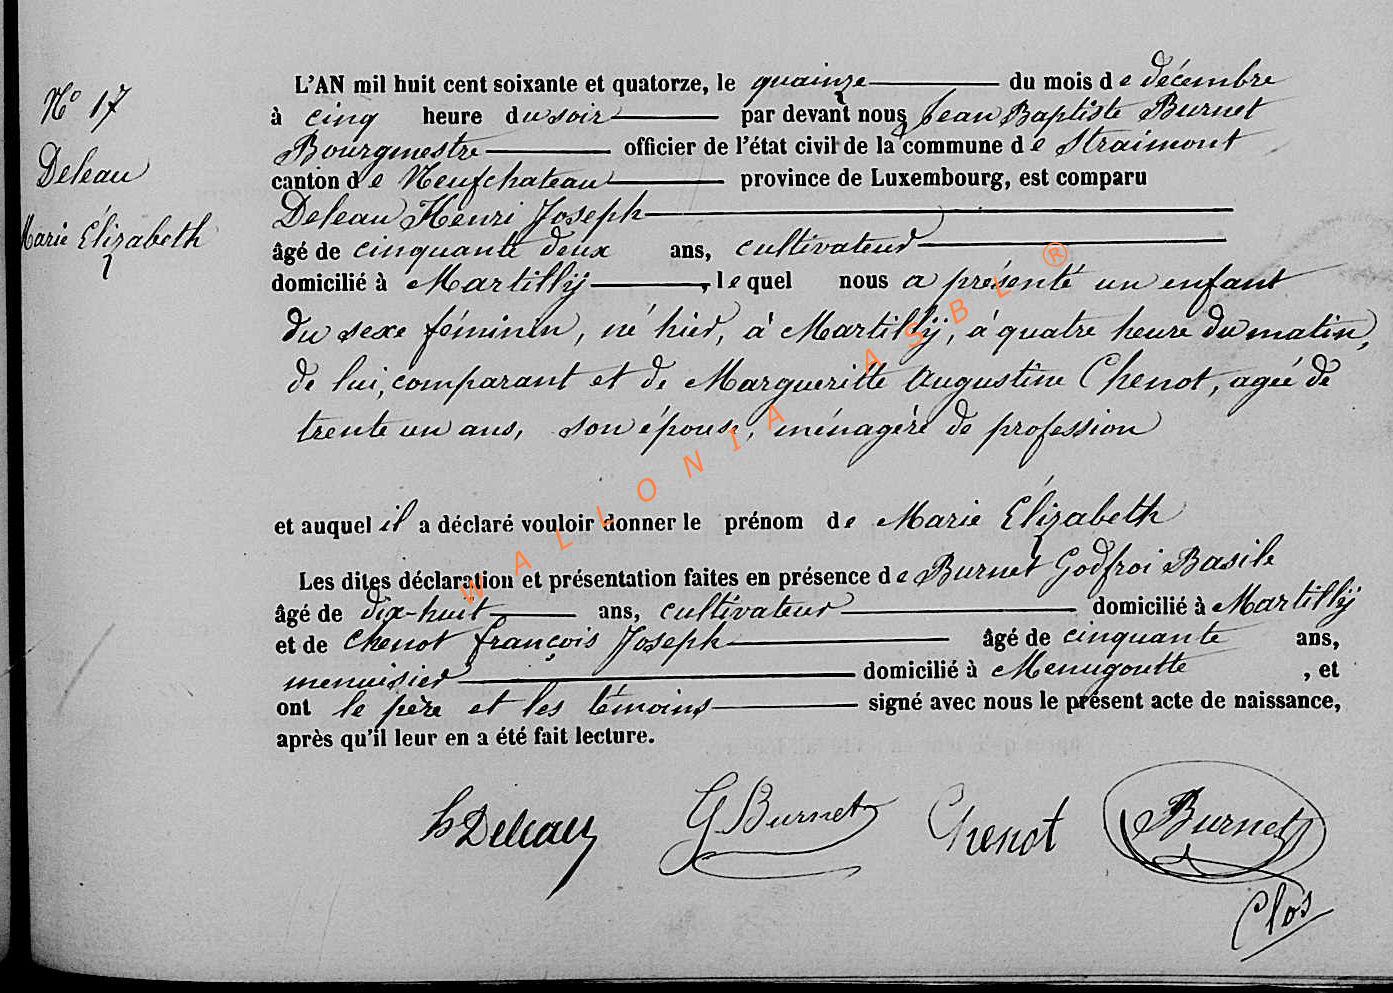 N° 17
Deleau
Marie Élizabeth
L'AN mil huit cent soixante et quatorze, le quainze du mois de décembre
à cinq heure du soir par devant nous Jean Baptiste Burnet
Bourgmestre officier de l'état civil de la commune de Straimont
canton de Neufchateau province de Luxembourg, est comparu
Deleau Henri Joseph
âgé de cinquante deux ans, cultivateur
domicilié à Martilly, lequel nous a présenté un enfant
du sexe féminin, né hier, à Martilly, à quatre heure du matin,
de lui, comparant et de Margueritte Augustine Chenot, agée de
trente un ans, son épouse, ménagère de profession
et auquel il a déclaré vouloir donner le prénom de Marie Élizabeth
Les dites déclaration et présentation faites en présence de Burnet Godfroi Basile
âgé de dix-huit ans, cultivateur domicilié à Martilly
et de Chenot françois Joseph âgé de cinquante ans,
menuisier domicilié à Menugoutte, et
ont le père et les témoins signé avec nous le présent acte de naissance,
après qu'il leur en a été fait lecture.
h Deleau G. Burnet Chenot Burnet
Clos
WALLONIA ASBL ®